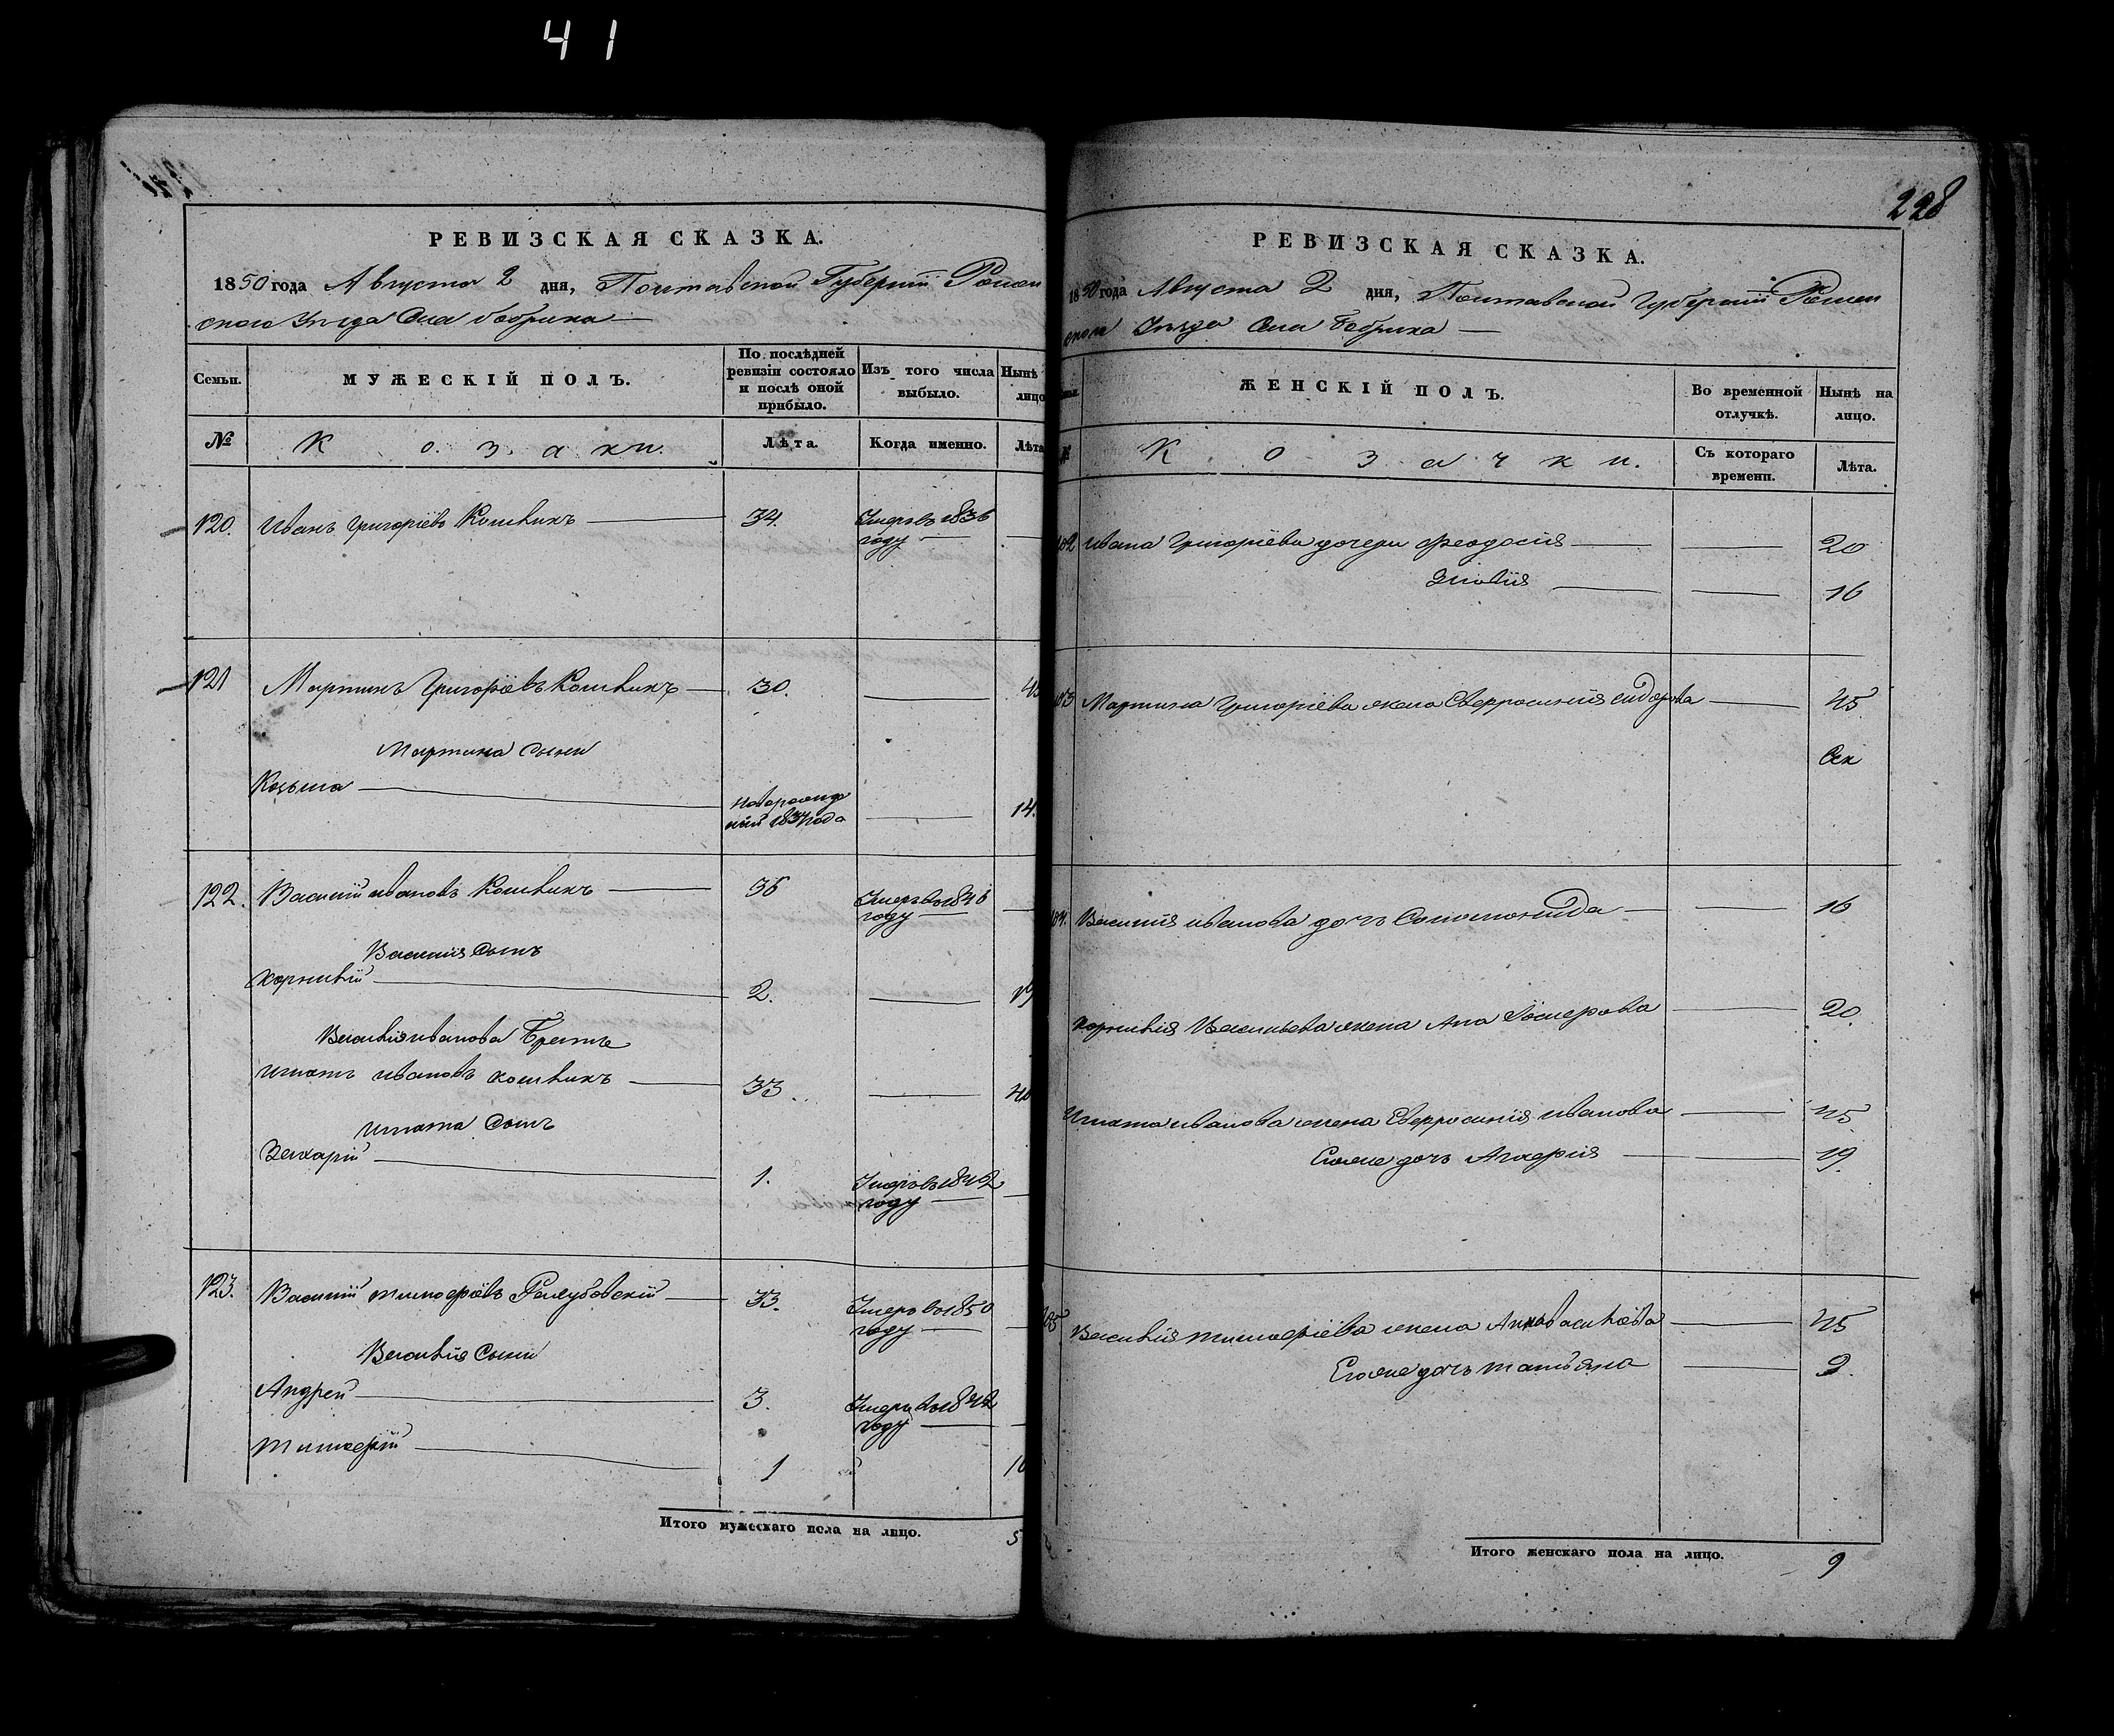 41
РЕВИЗСКАЯ СКАЗКА.
1850 года Августа 2 дня, Полтавской Губерніи Ромен
скаго Уѣзда Села бобрика
Семьи.
МУЖЕСКІЙ ПОЛЪ.
По послѣдней ревизіи состояло и послѣ оной прибыло.
Изъ того числа выбыло.
Нынѣ лицо
№
Козаки.
Лѣта.
Когда именно.
Лѣта
120. Иванъ Григоріевъ 34. Умеръ въ 1836
году
121 Мартинъ Григоріевъ 30.
Мартина сыны
Козьма новорожде
ный 1837 года 14.
122. Василій ивановъ 36 Умеръ в 1846
году
Василія сынъ
Корнилій 2. 19
Василія иванова Братъ
игнатъ ивановъ 33.
игната сынъ
Захарій 1. Умеръ в 1842
году
123. Василій тимофѣевъ 33. Умеръ в 1850
году
Василія сыны
Андрей 3. Умеръ в 1842
году
тимофѣй 1
Итого мужескаго пола на лицо. 5
228
РЕВИЗСКАЯ СКАЗКА.
1850 года Августа 2 дня, Полтавской Губерніи Ромен
скаго Уѣзда Села Бобрика
ЖЕНСКІЙ ПОЛЪ.
Во временной отлучкѣ.
Нынѣ на лицо.
№
Козачки.
Съ котораго времени.
Лѣта.
ивана Григоріева дочери Феодосія 20
Зиновія 16
Мартина Григоріева жена Евфросинія сидорова 45
Василія иванова дочь Соломонида 16
Корнилія Васильева жена Ана 20.
Игната иванова жена Евфросинія иванова 45
Егоже дочь Агафія 19.
Василія тимофѣева жена Анна васильева 45
Егоже дочь татьяна 9.
Итого женскаго пола на лицо. 9